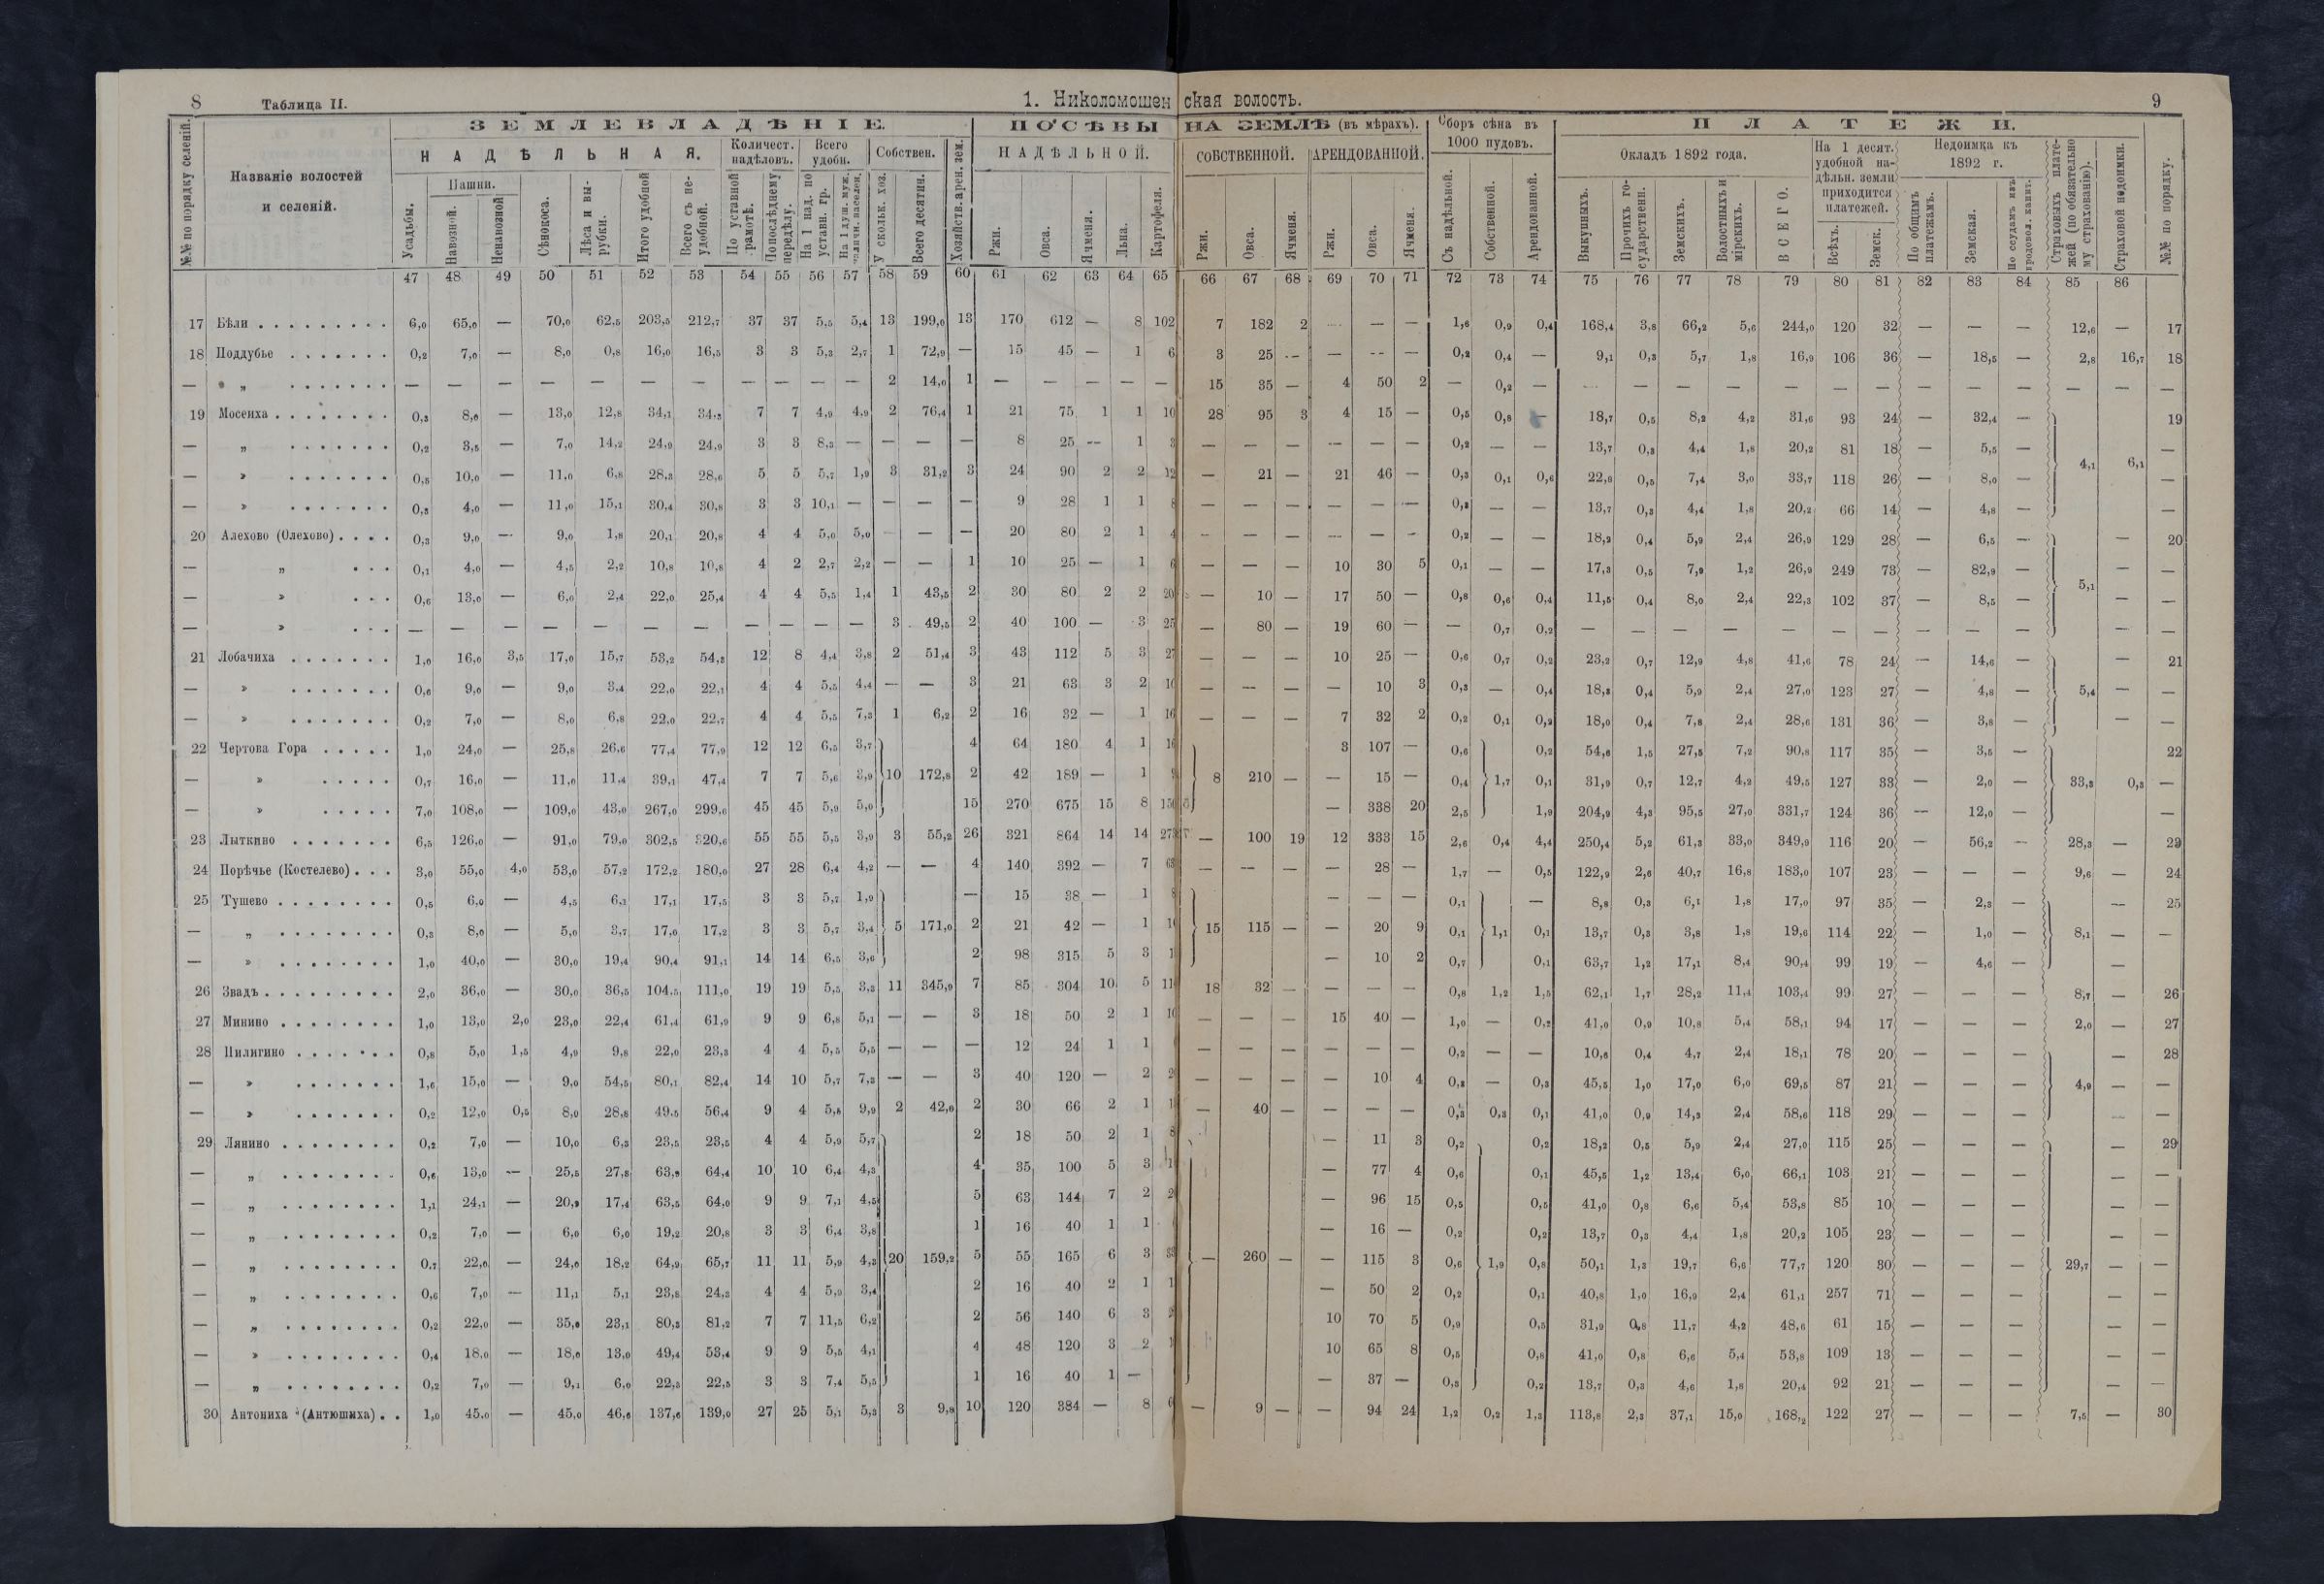 8 Таблица II. 1. Николомошен ская волость. 9
№№ по порядку селеній. Названіе волостей и селеній. ЗЕМЛЕВЛАДѢНІЕ. ПОСѢВЫ НА ЗЕМЛѢ (въ мѣрахъ). Сборъ сѣна въ 1000 пудовъ. ПЛАТЕЖИ. №№ по порядку.
НАДѢЛЬНАЯ. Количест. надѣловъ. Всего удобн. Собствен. Хозяйств. арен. зем. НАДѢЛЬНОЙ. СОБСТВЕННОЙ. АРЕНДОВАННОЙ. Окладъ 1892 года. На 1 десят. удобной надѣльн. земли приходится платежей. Недоимка къ 1892 г. Страховыхъ платежей (по обязательному страхованію). Страховой недоимки.
Усадьбы. Пашни. Навозной. Ненавозной Сѣнокоса. Лѣса и вырубки. Итого удобной Всего съ неудобной. По уставной грамотѣ. По послѣднему передѣлу. На 1 над. по уставн. гр. На 1 душ. муж. наличн. населен. У скольк. хоз. Всего десятин. Ржи. Овса. Ячменя. Льна. Картофеля. Ржи. Овса. Ячменя. Ржи. Овса. Ячменя. Съ надѣльной. Собственной. Арендованной. Выкупныхъ. Прочихъ государственн. Земскихъ. Волостныхъ и мірскихъ. ВСЕГО. Всѣхъ. Земск. По общимъ платежамъ. Земская. По ссудамъ изъ продовол. капит.
47 48 49 50 51 52 53 54 55 56 57 58 59 60 61 62 63 64 65 66 67 68 69 70 71 72 73 74 75 76 77 78 79 80 81 82 83 84 85 86
17 Бѣли 6,0 65,0 — 70,0 62,5 203,5 212,7 37 37 5,5 5,4 13 199,0 13 170 612 — 8 102 7 182 2 — — — 1,6 0,9 0,4 168,4 3,8 66,2 5,6 244,0 120 32 — — — 12,6 — 17
18 Поддубье 0,2 7,0 — 8,0 0,8 16,0 16,5 3 3 5,3 2,7 1 72,9 — 15 45 — 1 6 3 25 — — — — 0,2 0,4 — 9,1 0,3 5,7 1,8 16,9 106 36 — 18,5 — 2,8 16,7 18
— „ — — — — — — — — — — — 2 14,0 1 — — — — — 15 35 — 4 50 2 — 0,2 — — — — — — — — — — — — — —
19 Мосеиха 0,3 8,0 — 13,0 12,8 34,1 34,3 7 7 4,9 4,9 2 76,4 1 21 75 1 1 10 28 95 3 4 15 — 0,5 0,8 — 18,7 0,5 8,2 4,2 31,6 93 24 — 32,4 — 19
— „ 0,2 3,5 — 7,0 14,2 24,9 24,9 3 3 8,3 — — — — 8 25 — 1 3 — — — — — — 0,2 — — 13,7 0,3 4,4 1,8 20,2 81 18 — 5,5 — —
— „ 0,5 10,0 — 11,0 6,8 28,3 28,6 5 5 5,7 1,9 3 31,2 3 24 90 2 2 12 — 21 — 21 46 — 0,3 0,1 0,6 22,8 0,5 7,4 3,0 33,7 118 26 — 8,0 — 4,1 6,1 —
— „ 0,3 4,0 — 11,0 15,1 30,4 30,8 3 3 10,1 — — — — 9 28 1 1 8 — — — — — — 0,2 — — 13,7 0,3 4,4 1,8 20,2 66 14 — 4,8 — —
20 Алехово (Олехово) 0,3 9,0 — 9,0 1,8 20,1 20,8 4 4 5,0 5,0 — — — 20 80 2 1 4 — — — — — — 0,2 — — 18,2 0,4 5,9 2,4 26,9 129 28 — 6,5 — — 20
— „ 0,1 4,0 — 4,5 2,2 10,8 10,8 4 2 2,7 2,2 — — 1 10 25 — 1 6 — — — 10 30 5 0,1 — — 17,3 0,5 7,9 1,2 26,9 249 73 — 82,9 — — —
— „ 0,6 13,0 — 6,0 2,4 22,0 25,4 4 4 5,5 1,4 1 43,5 2 30 80 2 2 20 — 10 — 17 50 — 0,8 0,6 0,4 11,5 0,4 8,0 2,4 22,3 102 37 — 8,5 — 5,1 — —
— „ — — — — — — — — — — — 3 49,5 2 40 100 — 3 25 — 80 — 19 60 — — 0,7 0,2 — — — — — — — — — — — —
21 Лобачиха 1,0 16,0 3,5 17,0 15,7 53,2 54,3 12 8 4,4 3,8 2 51,4 3 43 112 5 3 27 — — — 10 25 — 0,6 0,7 0,2 23,2 0,7 12,9 4,8 41,6 78 24 — 14,6 — — 21
— „ 0,6 9,0 — 9,0 3,4 22,0 22,1 4 4 5,5 4,4 — — 3 21 63 3 2 10 — — — — 10 3 0,3 — 0,4 18,3 0,4 5,9 2,4 27,0 123 27 — 4,8 — 5,4 — —
— „ 0,2 7,0 — 8,0 6,8 22,0 22,7 4 4 5,5 7,3 1 6,2 2 16 32 — 1 16 — — — 7 32 2 0,2 0,1 0,2 18,0 0,4 7,8 2,4 28,6 131 36 — 3,8 — — —
22 Чертова Гора 1,0 24,0 — 25,8 26,6 77,4 77,9 12 12 6,5 3,7 4 64 180 4 1 16 3 107 — 0,6 0,2 54,6 1,5 27,5 7,2 90,8 117 35 — 3,5 — 22
— „ 0,7 16,0 — 11,0 11,4 39,1 47,4 7 7 5,6 3,9 10 172,8 2 42 189 — 1 9 8 210 — — 15 — 0,4 1,7 0,1 31,9 0,7 12,7 4,2 49,5 127 33 — 2,0 — 33,3 0,3 —
— „ 7,0 108,0 — 109,0 43,0 267,0 299,6 45 45 5,9 5,0 15 270 675 15 8 — 338 20 2,5 1,9 204,9 4,3 95,5 27,0 331,7 124 36 — 12,0 — —
23 Лыткино 6,5 126,0 — 91,0 79,0 302,5 320,6 55 55 5,5 3,9 3 55,2 26 321 864 14 14 — 100 19 12 333 15 2,6 0,4 4,4 250,4 5,2 61,3 33,0 349,9 116 20 — 56,2 — 28,3 — 23
24 Порѣчье (Костелево) 3,0 55,0 4,0 53,0 57,2 172,2 180,0 27 28 6,4 4,2 — — 4 140 392 — 7 63 — — — — 28 — 1,7 — 0,5 122,9 2,6 40,7 16,8 183,0 107 23 — — — 9,6 — 24
25 Тушево 0,5 6,0 — 4,5 6,1 17,1 17,5 3 3 5,7 1,9 — 15 38 — 1 8 — — — 0,1 — 8,8 0,3 6,1 1,8 17,0 97 35 — 2,3 — — 25
— „ 0,3 8,0 — 5,0 3,7 17,0 17,2 3 3 5,7 3,4 5 171,0 2 21 42 — 1 15 115 — — 20 9 0,1 1,1 0,1 13,7 0,3 3,8 1,8 19,6 114 22 — 1,0 — 8,1 — —
— „ 1,0 40,0 — 30,0 19,4 90,4 91,1 14 14 6,5 3,6 2 98 315 5 3 — 10 2 0,7 0,1 63,7 1,2 17,1 8,4 90,4 99 19 — 4,6 — —
26 Звадъ 2,0 36,0 — 30,0 36,5 104,5 111,0 19 19 5,5 3,3 11 345,9 7 85 304 10 5 18 32 — — — — 0,8 1,2 1,5 62,1 1,7 28,2 11,4 103,4 99 27 — — — 8,7 — 26
27 Минино 1,0 13,0 2,0 23,0 22,4 61,4 61,9 9 9 6,8 5,1 — — 3 18 50 2 1 10 — — — 15 40 — 1,0 — 0,2 41,0 0,9 10,8 5,4 58,1 94 17 — — — 2,0 — 27
28 Пилигино 0,8 5,0 1,5 4,9 9,8 22,0 23,3 4 4 5,5 5,5 — — — 12 24 1 1 — — — — — — 0,2 — — 10,6 0,4 4,7 2,4 18,1 78 20 — — — — 28
— „ 1,6 15,0 — 9,0 54,5 80,1 82,4 14 10 5,7 7,3 — — 3 40 120 — 2 — — — — 10 4 0,3 — 0,3 45,5 1,0 17,0 6,0 69,5 87 21 — — — 4,9 — —
— „ 0,2 12,0 0,5 8,0 28,8 49,5 56,4 9 4 5,8 9,9 2 42,0 2 30 66 2 1 — 40 — — — — 0,3 0,3 0,1 41,0 0,9 14,3 2,4 58,6 118 29 — — — — —
29 Лянино 0,2 7,0 — 10,0 6,3 23,5 23,5 4 4 5,9 5,7 2 18 50 2 1 8 — 11 3 0,2 0,2 18,2 0,5 5,9 2,4 27,0 115 25 — — — 29
— „ 0,6 13,0 — 25,5 27,8 63,9 64,4 10 10 6,4 4,3 4 35 100 5 3 — 77 4 0,6 0,1 45,5 1,2 13,4 6,0 66,1 103 21 — — — — —
— „ 1,1 24,1 — 20,9 17,4 63,5 64,0 9 9 7,1 4,5 5 63 144 7 2 — 96 15 0,5 0,5 41,0 0,8 6,6 5,4 53,8 85 10 — — — — —
— „ 0,2 7,0 — 6,0 6,0 19,2 20,8 3 3 6,4 3,8 1 16 40 1 1 — 16 — 0,2 0,2 13,7 0,3 4,4 1,8 20,2 105 23 — — — — —
— „ 0,7 22,0 — 24,0 18,2 64,9 65,7 11 11 5,9 4,3 20 159,2 5 55 165 6 3 33 — 260 — — 115 3 0,6 1,9 0,8 50,1 1,3 19,7 6,6 77,7 120 30 — — — 29,7 — —
— „ 0,6 7,0 — 11,1 5,1 23,8 24,3 4 4 5,9 3,4 2 16 40 2 1 — 50 2 0,2 0,1 40,8 1,0 16,9 2,4 61,1 257 71 — — — — —
— „ 0,2 22,0 — 35,0 23,1 80,3 81,2 7 7 11,5 6,2 2 56 140 6 3 10 70 5 0,9 0,5 31,9 0,8 11,7 4,2 48,6 61 15 — — — — —
— „ 0,4 18,0 — 18,0 13,0 49,4 53,4 9 9 5,5 4,1 4 48 120 3 2 10 65 8 0,5 0,8 41,0 0,8 6,6 5,4 53,8 109 13 — — — — —
— „ 0,2 7,0 — 9,1 6,0 22,3 22,5 3 3 7,4 5,5 1 16 40 1 — — 37 — 0,3 0,2 13,7 0,3 4,6 1,8 20,4 92 21 — — — — —
30 Антониха (Антюшиха) 1,0 45,0 — 45,0 46,6 137,6 139,0 27 25 5,1 5,3 3 9,8 10 120 384 — 8 — 9 — — 94 24 1,2 0,2 1,3 113,8 2,3 37,1 15,0 168,2 122 27 — — — 7,5 — 30